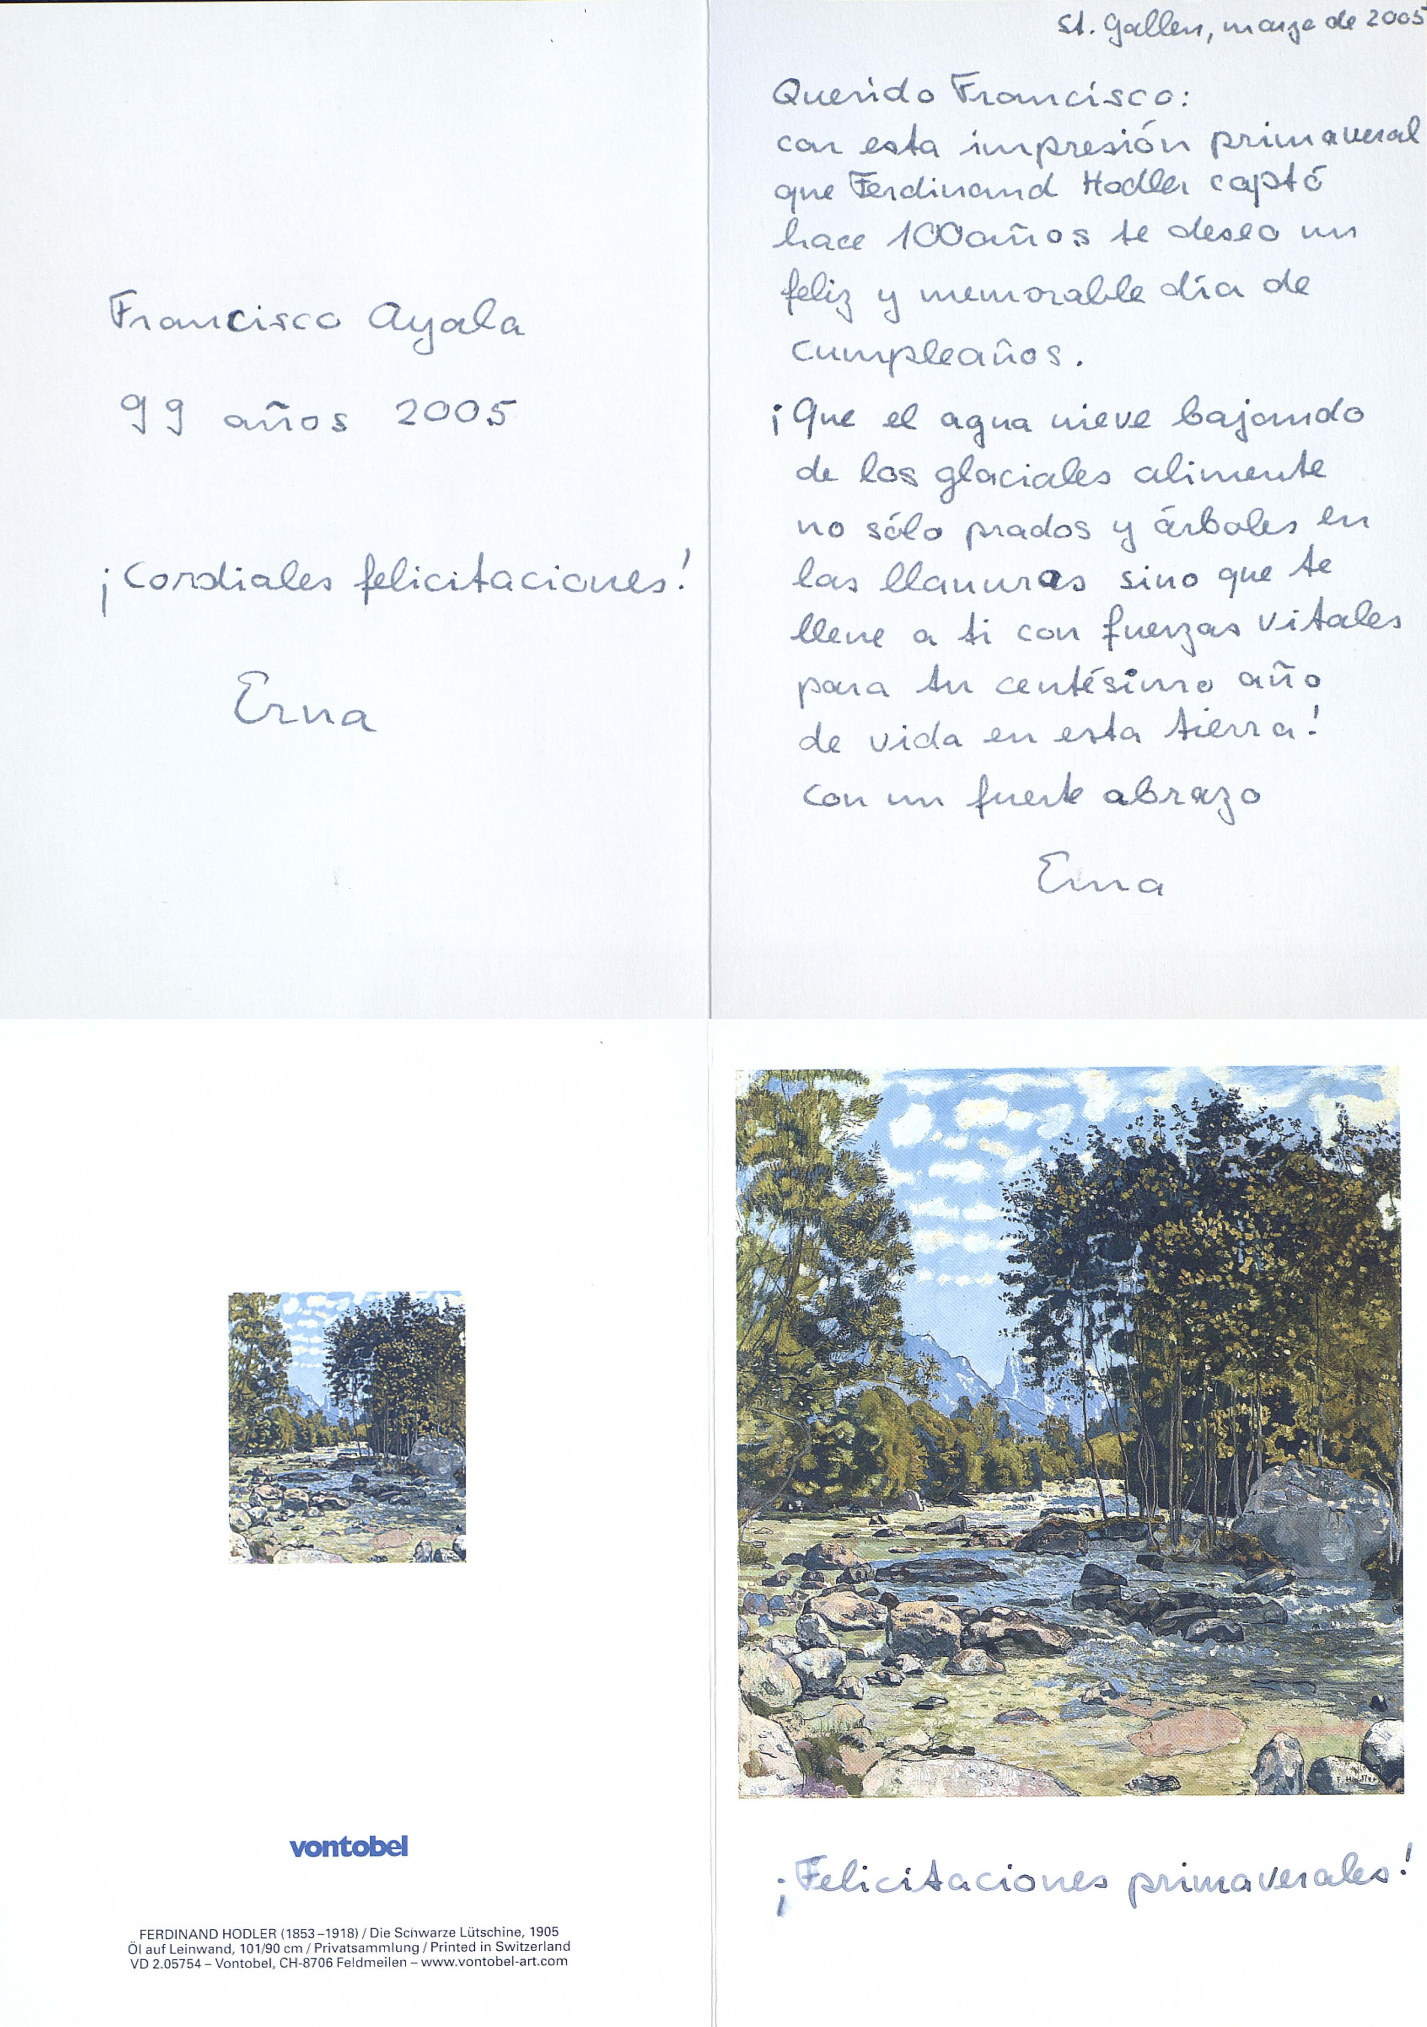 Francisco Ayala
99 años 2005
¡Cordiales felicitaciones!
Erna
St. Gallen, marzo de 2005
Querido Francisco:
con esta impresión primaveral
que Ferdinand Hodler captó
hace 100 años te deseo un
feliz y memorable día de
cumpleaños.
¡Que el agua nieve bajando
de los glaciales alimente
no sólo prados y árboles en
las llanuras sino que te
llene a ti con fuerzas vitales
para tu centésimo año
de vida en esta tierra!
Con un fuerte abrazo
Erna
vontobel
FERDINAND HODLER (1853–1918) / Die Schwarze Lütschine, 1905
Öl auf Leinwand, 101/90 cm / Privatsammlung / Printed in Switzerland
VD 2.05754 – Vontobel, CH-8706 Feldmeilen – www.vontobel-art.com
F. Hodler
¡Felicitaciones primaverales!